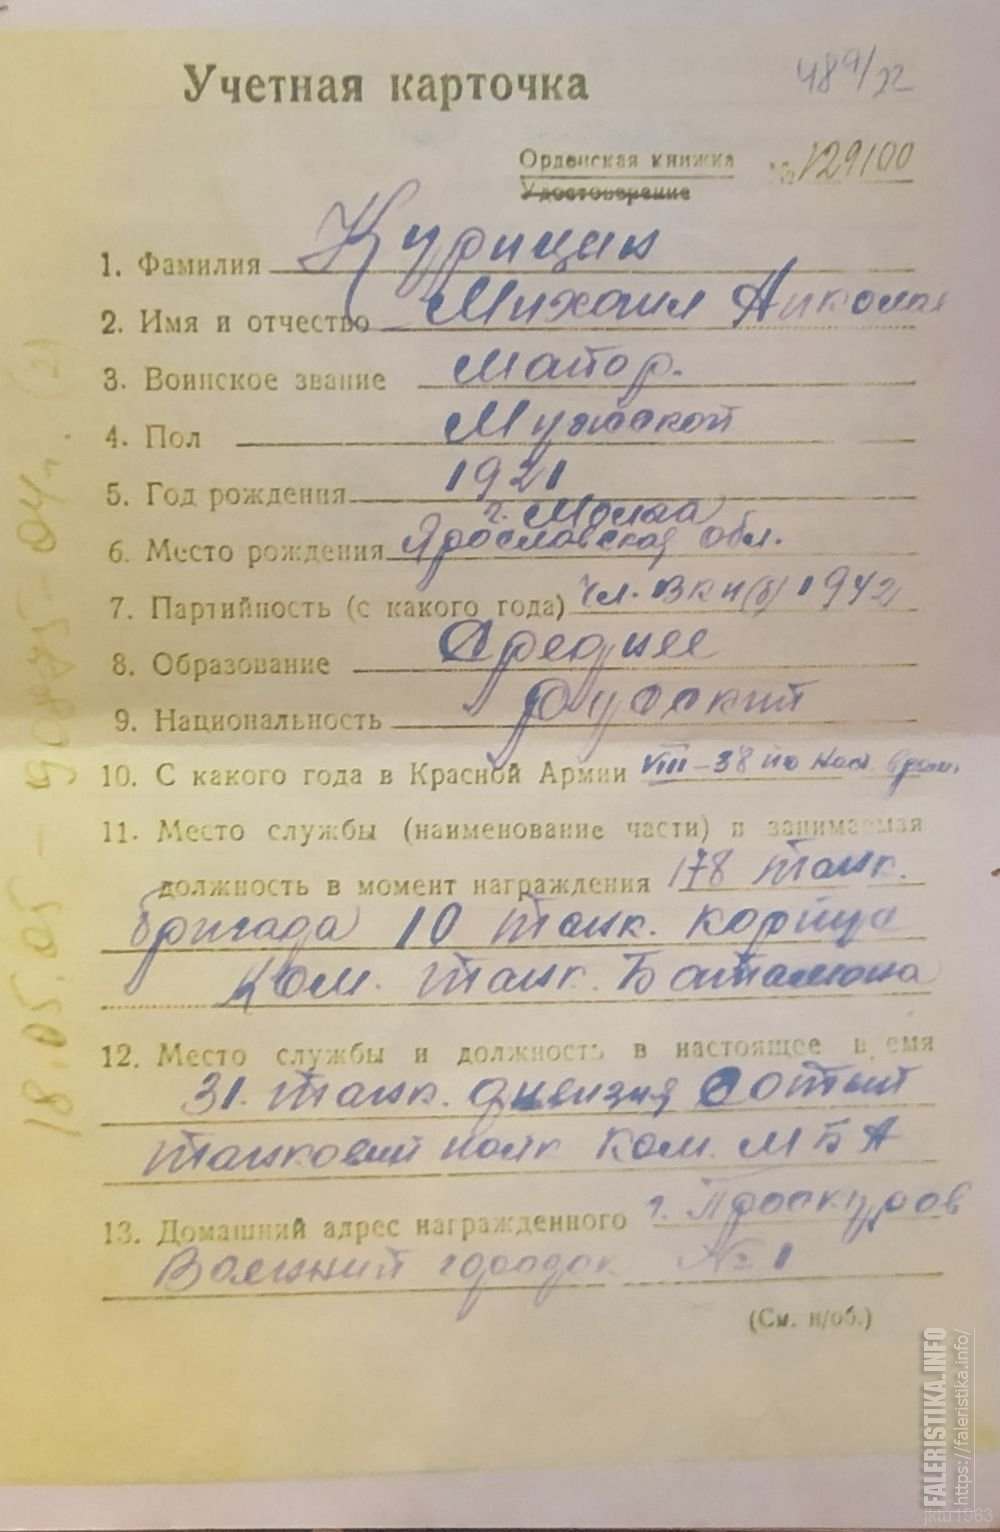 Учетная карточка
Орденская книжка № 129100
Удостоверение
1. Фамилия Курицин
2. Имя и отчество Михаил Николае
3. Воинское звание Майор.
4. Пол Мужской
5. Год рождения 1921
г. Молога
6. Место рождения Ярославская обл.
7. Партийность (с какого года) Чл. ВКП(б) 1942
8. Образование Среднее
9. Национальность Русский
10. С какого года в Красной Армии VIII-38 по наст. время
11. Место службы (наименование части) и занимаемая
должность в момент награждения 178 танк.
бригада 10 танк. корпуса
Ком. танк. Баталиона
12. Место службы и должность в настоящее время
31. танк. дивизия Сотый
танковый полк Ком. МБА
13. Домашний адрес награжденного г. Проскуров
Военный городок № 1
(См. н/об.)
FALERISTIKA.INFO
https://faleristika.info/
jktu1963